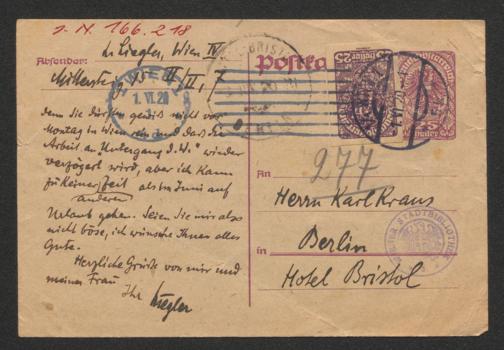 I. N. 166.218
Absender: L. Liegler, Wien IV
III/II, 7
denn Sie dürften gewiß nicht vor
Montag in Wien sein und daß die
Arbeit an "Untergang d. W." wieder
verzögert wird, aber ich kann
zu keiner Zeit als im Juni auf
anderen
Urlaub gehen. Seien Sie mir also
nicht böse, ich wünsche Ihnen alles
Gute.
Herzliche Grüße von mir und
meiner Frau
Ihr Liegler
WIEN
1. VI. 20
Postka
25
Heller
277
An
Herrn Karl Kraus
in Berlin
Hotel Bristol
WIENER STADTBIBLIOTHEK